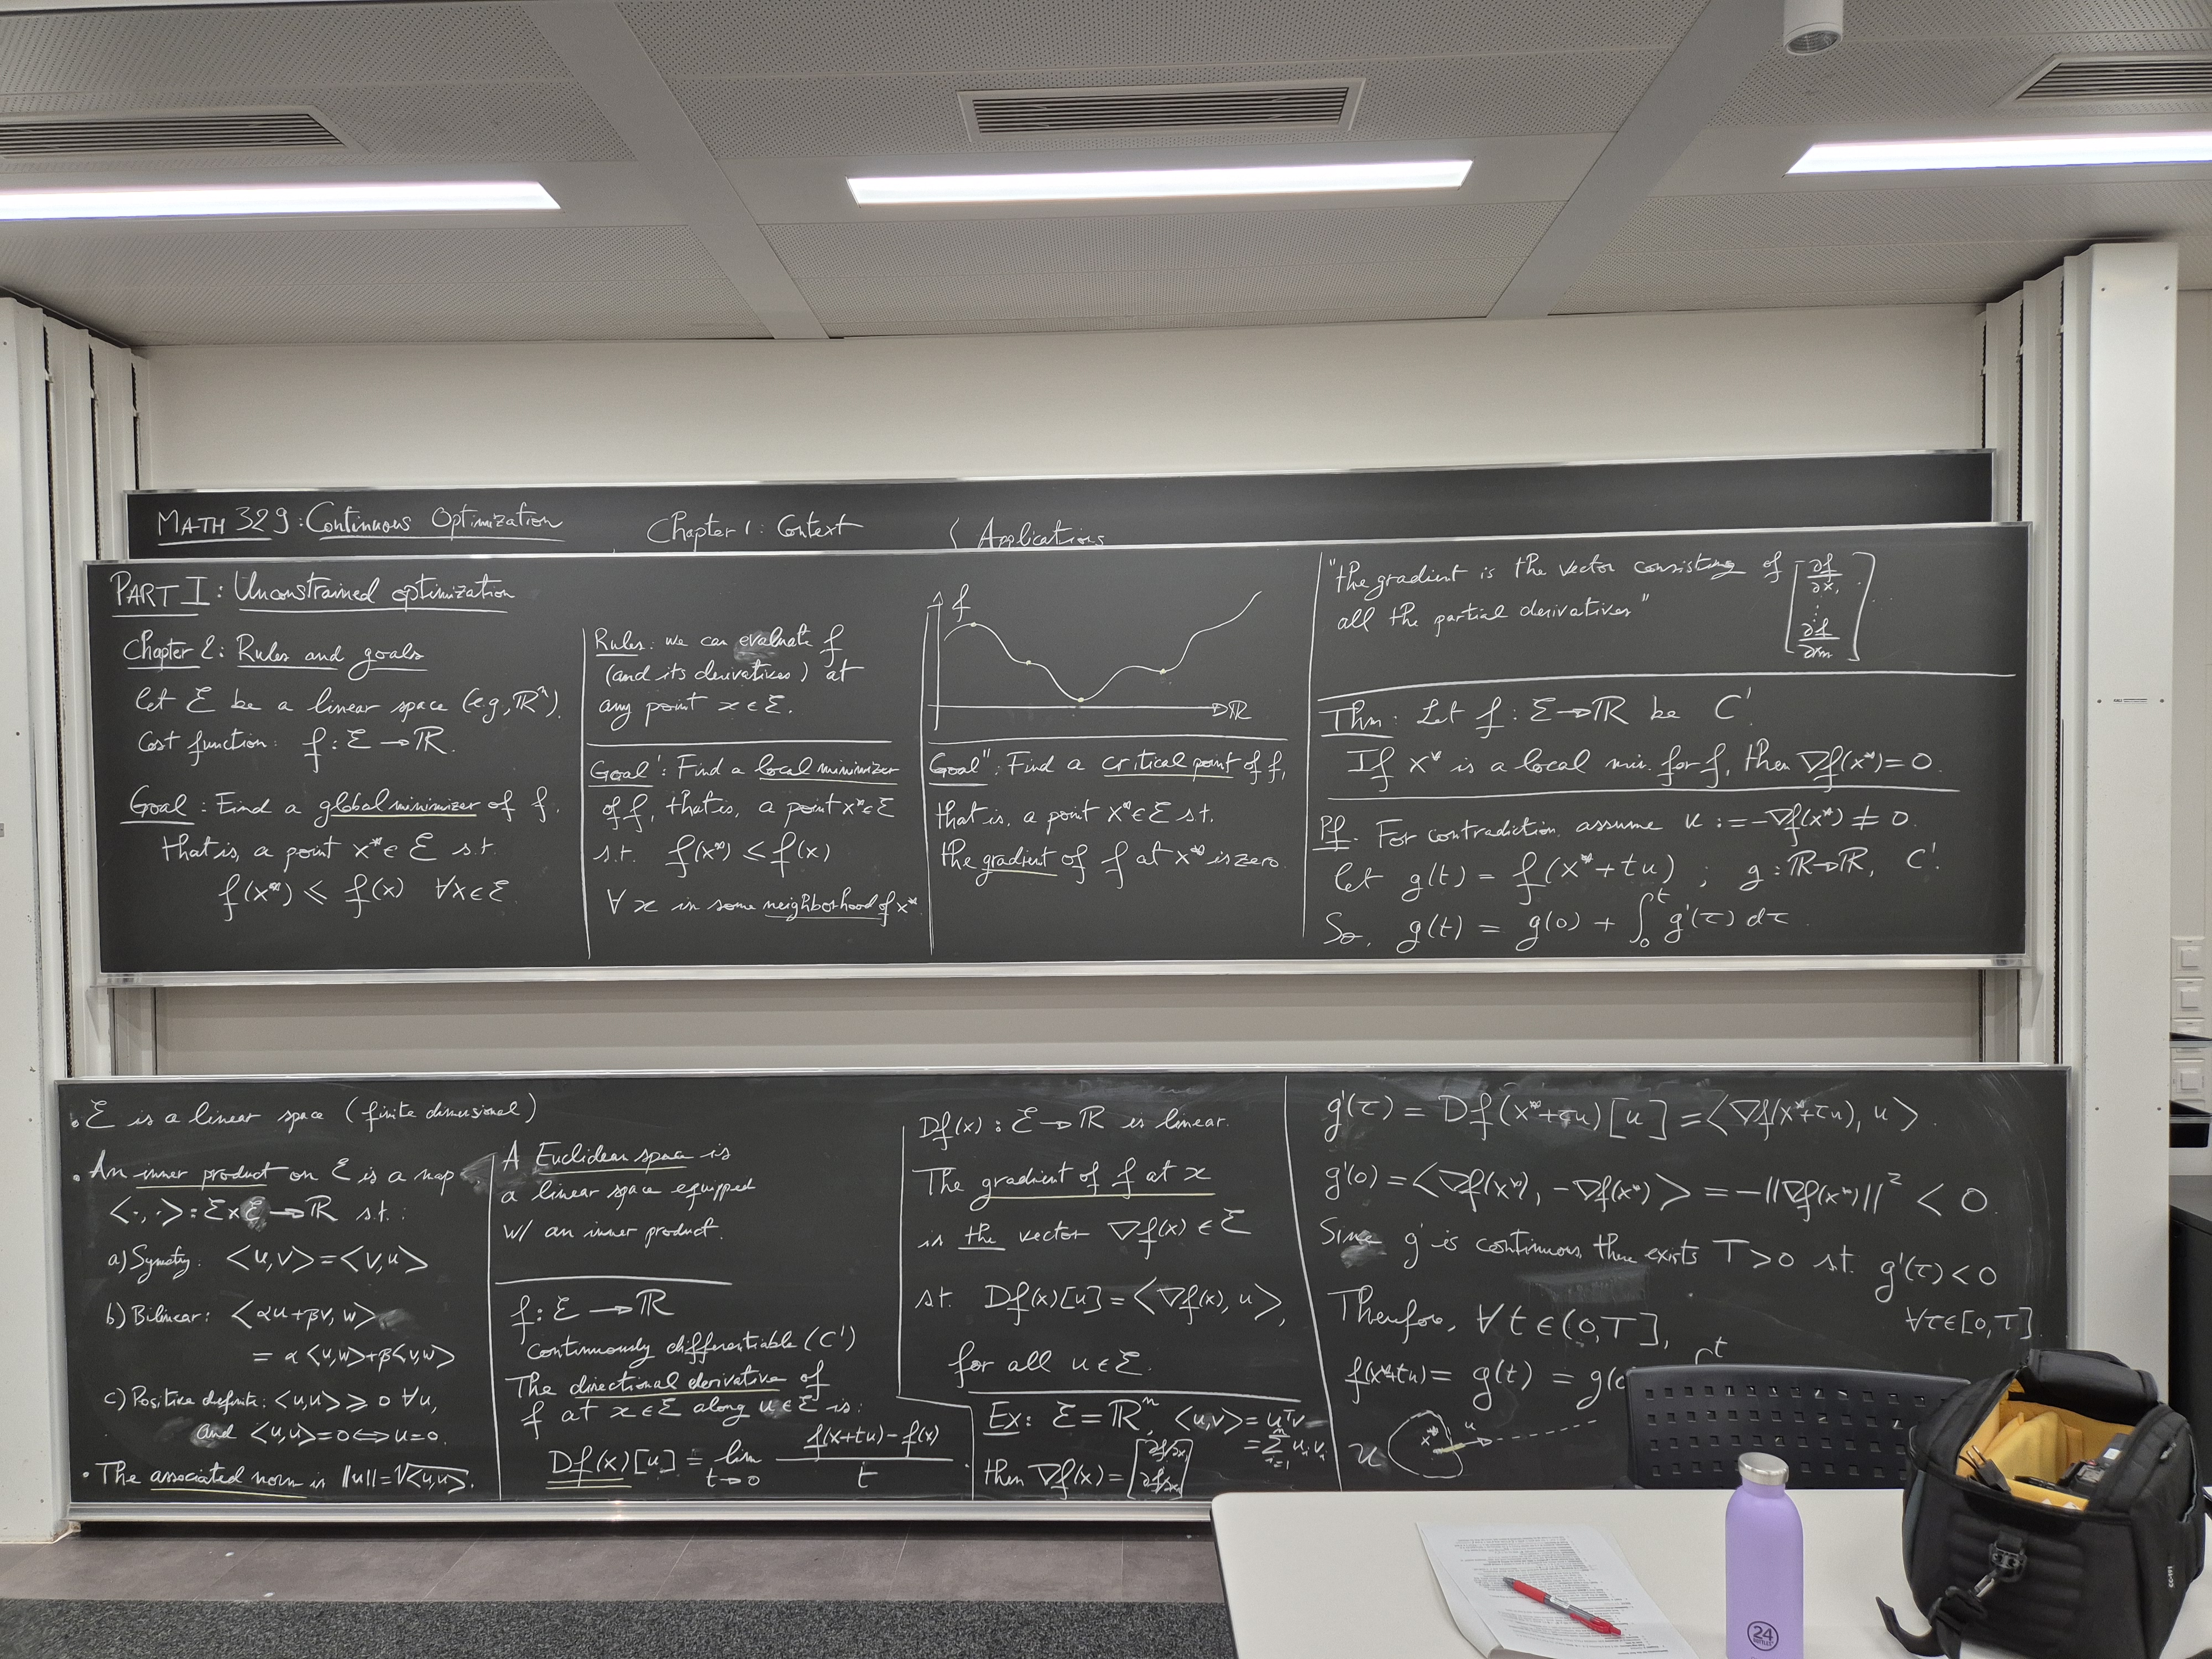 MATH 329: Continuous Optimization
Chapter 1: Context
Applications
PART I: Unconstrained optimization
Chapter 2: Rules and goals
Let ℰ be a linear space (e.g., ℝⁿ).
Cost function: f: ℰ → ℝ.
Goal: Find a global minimizer of f,
that is, a point x* ∈ ℰ s.t.
f(x*) ≤ f(x) ∀x ∈ ℰ
Rules: we can evaluate f
(and its derivatives) at
any point x ∈ ℰ.
Goal': Find a local minimizer
of f, that is, a point x* ∈ ℰ
s.t. f(x*) ≤ f(x)
∀ x in some neighborhood of x*
f
ℝ
Goal'': Find a critical point of f,
that is, a point x* ∈ ℰ s.t.
the gradient of f at x* is zero.
"the gradient is the vector consisting of [∂f/∂x₁
all the partial derivatives" ⋮
∂f/∂xₙ]
Thm: Let f: ℰ → ℝ be C¹.
If x* is a local min. for f, then ∇f(x*) = 0.
Pf. For contradiction, assume u := -∇f(x*) ≠ 0.
Let g(t) = f(x* + tu) ; g: ℝ → ℝ, C¹.
So, g(t) = g(0) + ∫₀ᵗ g'(τ) dτ
• ℰ is a linear space (finite dimensional)
• An inner product on ℰ is a map
<·,·>: ℰ × ℰ → ℝ s.t.:
a) Symetry: <u,v> = <v,u>
b) Bilinear: <αu+βv, w>
= α<u,w> + β<v,w>
c) Positive definite: <u,u> ≥ 0 ∀u,
and <u,u> = 0 ⟺ u = 0.
• The associated norm is ||u|| = √<u,u>.
A Euclidean space is
a linear space equipped
w/ an inner product.
f: ℰ → ℝ
continuously differentiable (C¹)
The directional derivative of
f at x ∈ ℰ along u ∈ ℰ is:
Df(x)[u] = lim t→0 (f(x+tu) - f(x))/t.
Df(x): ℰ → ℝ is linear.
The gradient of f at x
is the vector ∇f(x) ∈ ℰ
st. Df(x)[u] = <∇f(x), u>,
for all u ∈ ℰ.
Ex: ℰ = ℝⁿ, <u,v> = uᵀv
= Σᵢ₌₁ⁿ uᵢvᵢ
then ∇f(x) = [∂f/∂x₁ ⋮ ∂f/∂xₙ]
g'(τ) = Df(x*+τu)[u] = <∇f(x*+τu), u>.
g'(0) = <∇f(x*), -∇f(x*)> = -||∇f(x*)||² < 0.
Since g' is continuous, there exists T > 0 st. g'(τ) < 0
∀τ ∈ [0,T].
Therefore, ∀t ∈ (0,T],
f(x*+tu) = g(t) = g(
u x* u
24
BOTTLES